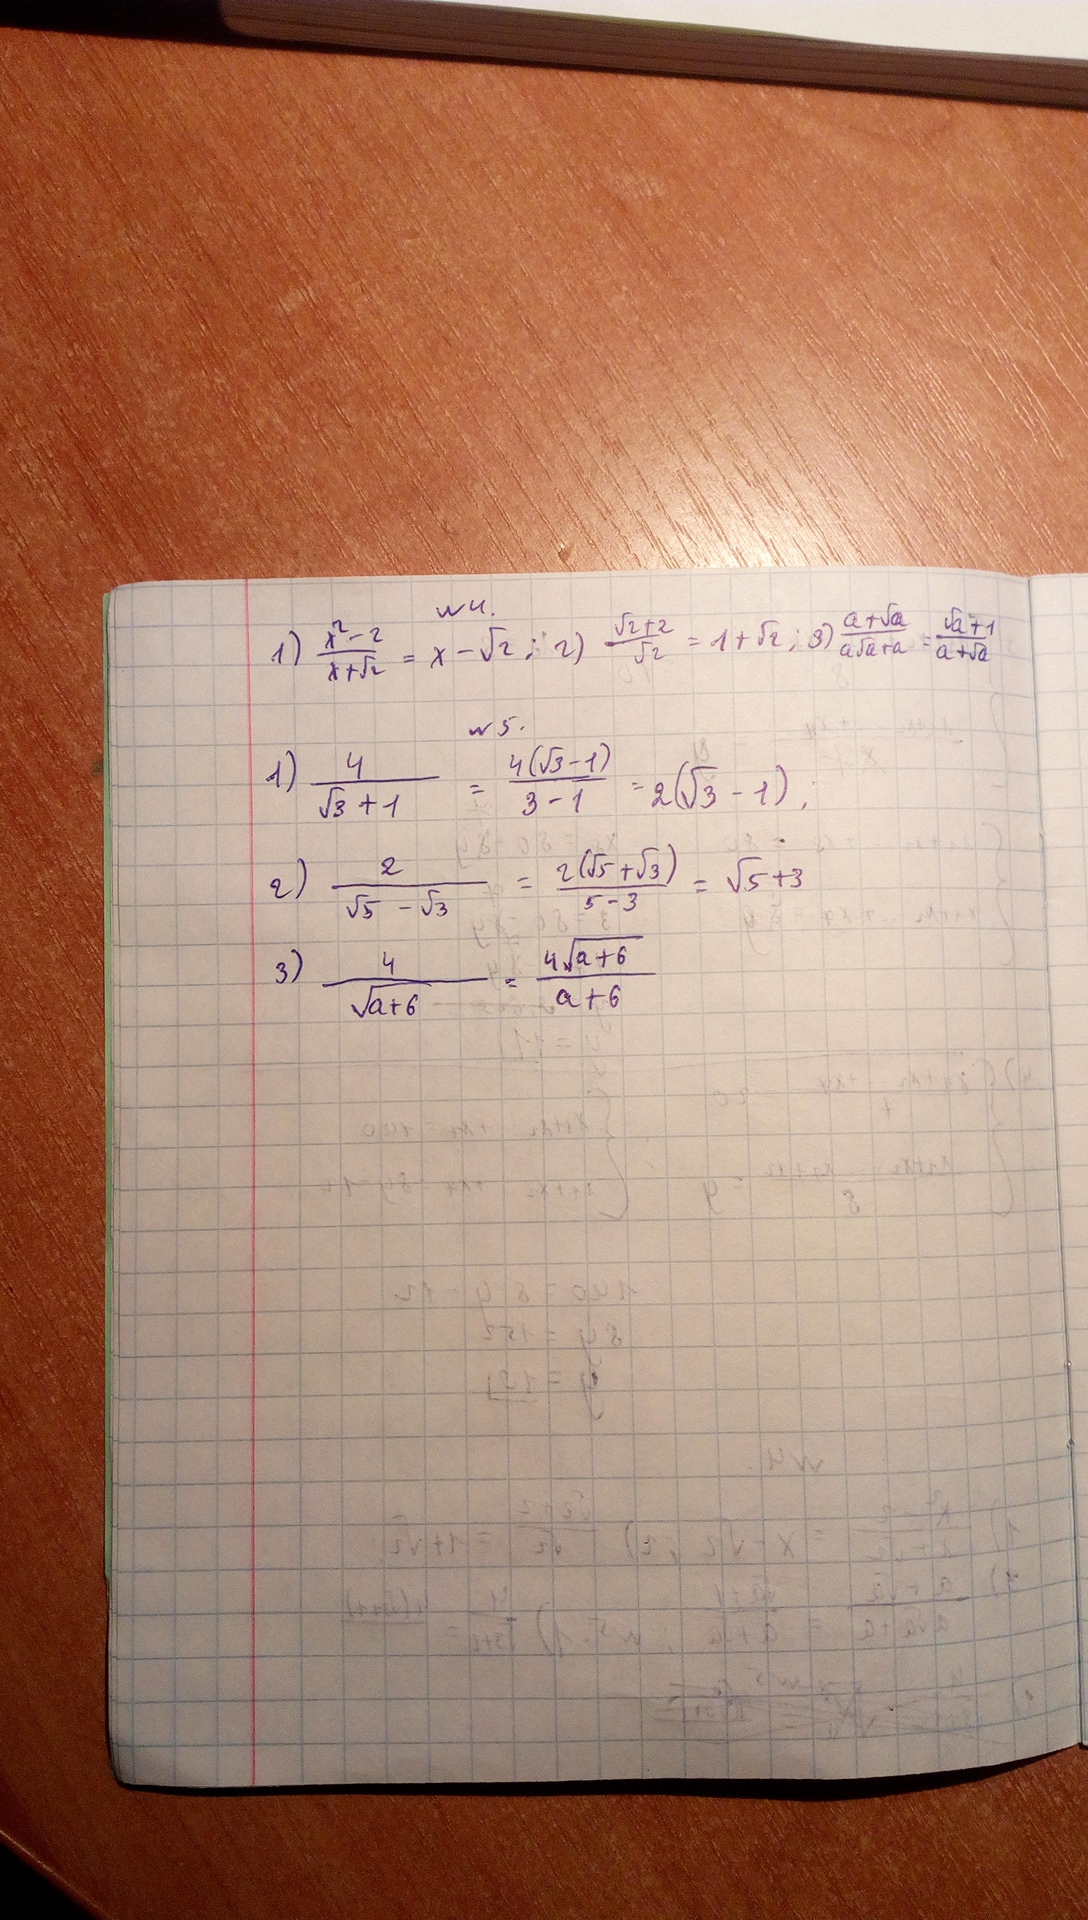 №4.
1) (x²-2)/(x+√2) = x-√2; 2) (√2+2)/√2 = 1+√2; 3) (a+√a)/(a√a+a) = (√a+1)/(a+√a)
№5.
1) 4/(√3+1) = 4(√3-1)/(3-1) = 2(√3-1);
2) 2/(√5-√3) = 2(√5+√3)/(5-3) = √5+3
3) 4/√(a+6) = 4√(a+6)/(a+6)